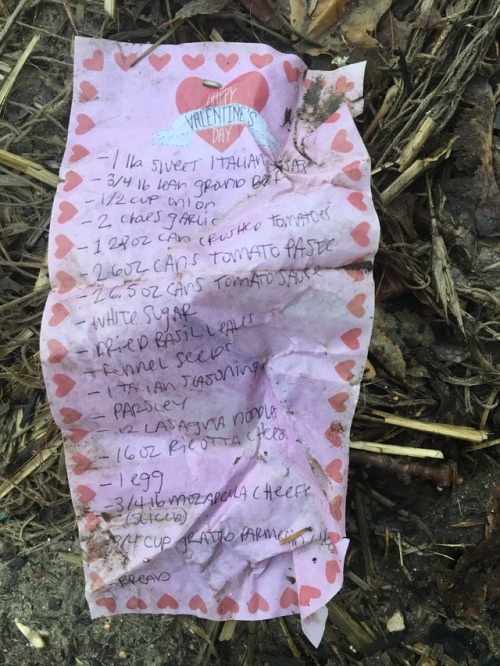 HAPPY
VALENTINE'S
DAY
- 1 lb SWEET ITALIAN
- 3/4 lb lean ground
- 1/2 cup onion
- 2 cloves garlic
- 1 28oz CAN CRUSHED TOMATOES
- 2 6oz CANS TOMATO PASTE
- 2 6.5oz CANS TOMATO SAUCE
- WHITE SUGAR
- DRIED BASIL LEAVES
- fennel seeds
- ITALIAN SEASONING
- PARSLEY
- 12 LASAGNA NOODLES
- 16 oz RICOTTA CHEESE
- 1 egg
- 3/4 lb MOZARELLA CHEESE
(SLICED)
- 3/4 CUP GRATED
- BREAD